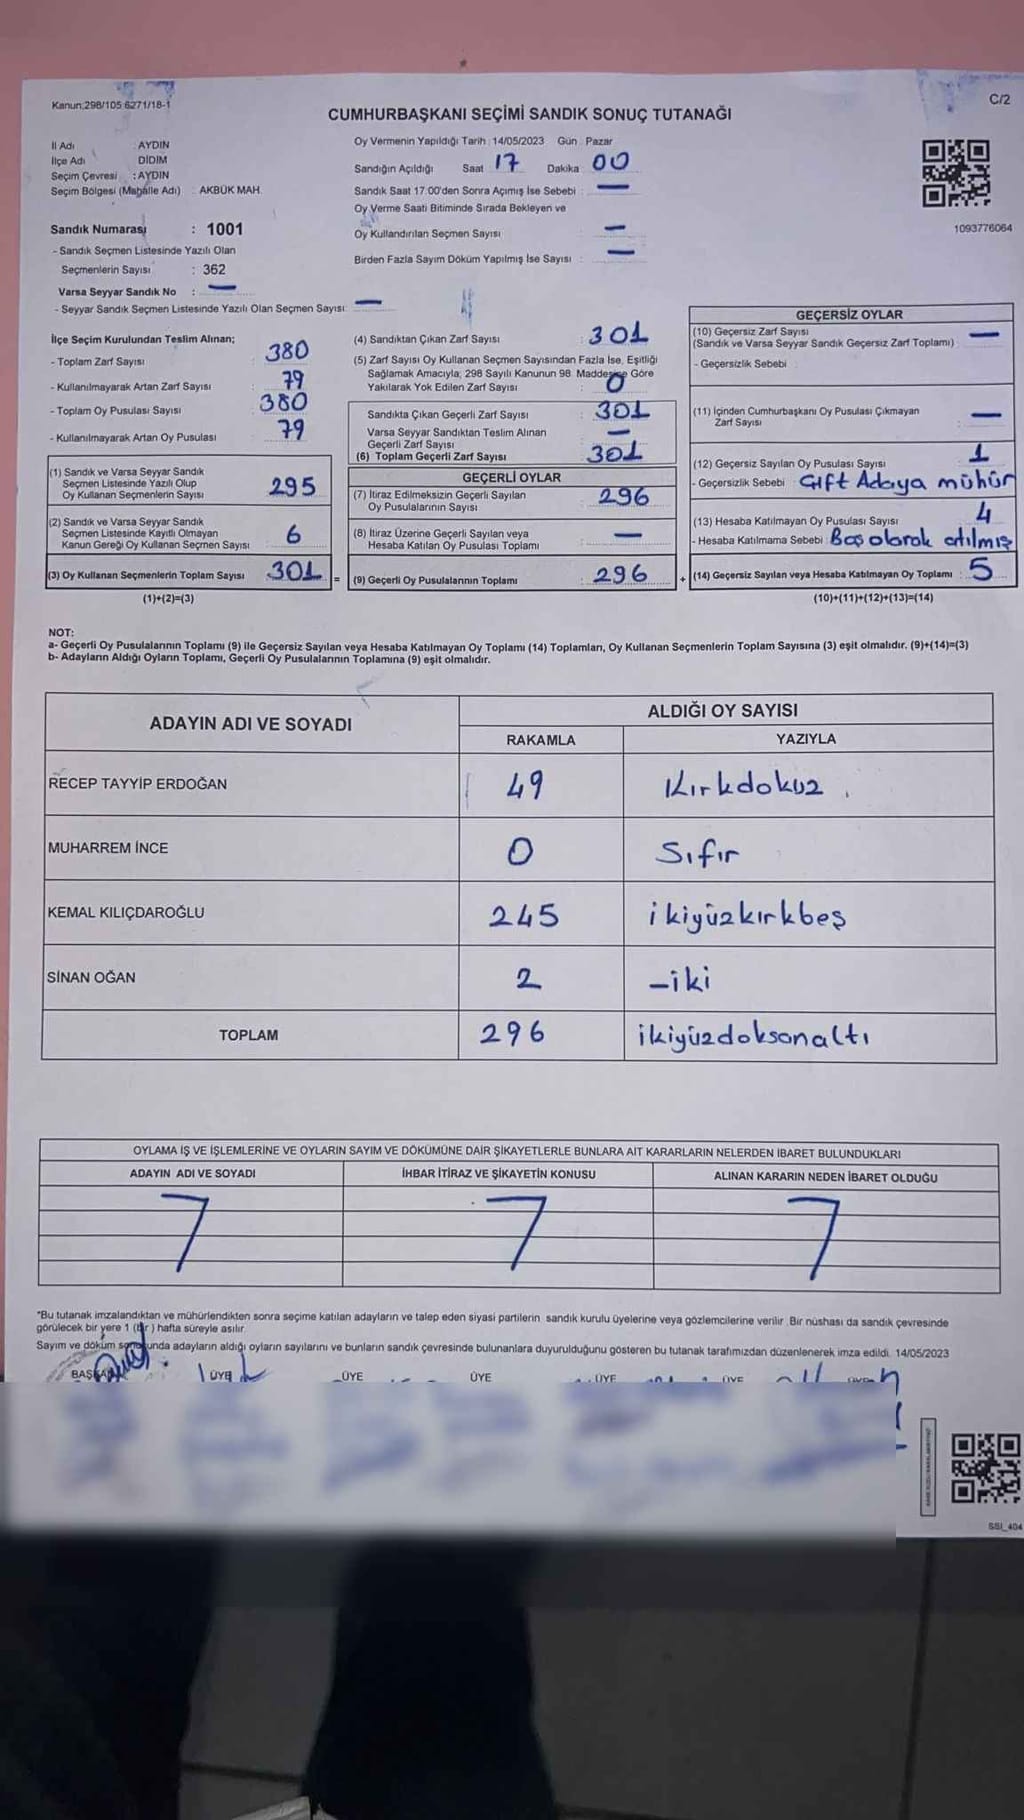 Kanun:298/105 6271/18-1
C/2
CUMHURBAŞKANI SEÇİMİ SANDIK SONUÇ TUTANAĞI
İl Adı : AYDIN
İlçe Adı : DİDİM
Seçim Çevresi : AYDIN
Seçim Bölgesi (Mahalle Adı) : AKBÜK MAH.
Sandık Numarası : 1001
- Sandık Seçmen Listesinde Yazılı Olan
Seçmenlerin Sayısı : 362
Varsa Seyyar Sandık No : —
- Seyyar Sandık Seçmen Listesinde Yazılı Olan Seçmen Sayısı: —
Oy Vermenin Yapıldığı Tarih : 14/05/2023 Gün : Pazar
Sandığın Açıldığı Saat 17 Dakika 00
Sandık Saat 17:00'den Sonra Açımış İse Sebebi : —
Oy Verme Saati Bitiminde Sırada Bekleyen ve
Oy Kullandırılan Seçmen Sayısı : —
Birden Fazla Sayım Döküm Yapılmış İse Sayısı : —
1093776064
İlçe Seçim Kurulundan Teslim Alınan;
- Toplam Zarf Sayısı : 380
- Kullanılmayarak Artan Zarf Sayısı : 79
- Toplam Oy Pusulası Sayısı : 380
- Kullanılmayarak Artan Oy Pusulası : 79
(1) Sandık ve Varsa Seyyar Sandık
Seçmen Listesinde Yazılı Olup
Oy Kullanan Seçmenlerin Sayısı : 295
(2) Sandık ve Varsa Seyyar Sandık
Seçmen Listesinde Kayıtlı Olmayan
Kanun Gereği Oy Kullanan Seçmen Sayısı : 6
(3) Oy Kullanan Seçmenlerin Toplam Sayısı : 301 =
(1)+(2)=(3)
(4) Sandıktan Çıkan Zarf Sayısı : 301
(5) Zarf Sayısı Oy Kullanan Seçmen Sayısından Fazla İse, Eşitliği
Sağlamak Amacıyla; 298 Sayılı Kanunun 98. Maddesine Göre
Yakılarak Yok Edilen Zarf Sayısı : 0
Sandıkta Çıkan Geçerli Zarf Sayısı : 301
Varsa Seyyar Sandıktan Teslim Alınan
Geçerli Zarf Sayısı : —
(6) Toplam Geçerli Zarf Sayısı : 301
GEÇERLİ OYLAR
(7) İtiraz Edilmeksizin Geçerli Sayılan
Oy Pusulalarının Sayısı : 296
(8) İtiraz Üzerine Geçerli Sayılan veya
Hesaba Katılan Oy Pusulası Toplamı : —
(9) Geçerli Oy Pusulalarının Toplamı : 296 +
GEÇERSİZ OYLAR
(10) Geçersiz Zarf Sayısı
(Sandık ve Varsa Seyyar Sandık Geçersiz Zarf Toplamı) : —
- Geçersizlik Sebebi :
(11) İçinden Cumhurbaşkanı Oy Pusulası Çıkmayan
Zarf Sayısı : —
(12) Geçersiz Sayılan Oy Pusulası Sayısı : 1
- Geçersizlik Sebebi : Çift Adaya mühür
(13) Hesaba Katılmayan Oy Pusulası Sayısı : 4
- Hesaba Katılmama Sebebi : Boş olarak atılmış
(14) Geçersiz Sayılan veya Hesaba Katılmayan Oy Toplamı : 5
(10)+(11)+(12)+(13)=(14)
NOT:
a- Geçerli Oy Pusulalarının Toplamı (9) ile Geçersiz Sayılan veya Hesaba Katılmayan Oy Toplamı (14) Toplamları, Oy Kullanan Seçmenlerin Toplam Sayısına (3) eşit olmalıdır. (9)+(14)=(3)
b- Adayların Aldığı Oyların Toplamı, Geçerli Oy Pusulalarının Toplamına (9) eşit olmalıdır.
ADAYIN ADI VE SOYADI
ALDIĞI OY SAYISI
RAKAMLA YAZIYLA
RECEP TAYYİP ERDOĞAN 49 Kırkdokuz
MUHARREM İNCE 0 Sıfır
KEMAL KILIÇDAROĞLU 245 ikiyüzkırkbeş
SİNAN OĞAN 2 –iki
TOPLAM 296 ikiyüzdoksanaltı
OYLAMA İŞ VE İŞLEMLERİNE VE OYLARIN SAYIM VE DÖKÜMÜNE DAİR ŞİKAYETLERLE BUNLARA AİT KARARLARIN NELERDEN İBARET BULUNDUKLARI
ADAYIN ADI VE SOYADI İHBAR İTİRAZ VE ŞİKAYETİN KONUSU ALINAN KARARIN NEDEN İBARET OLDUĞU
*Bu tutanak imzalandıktan ve mühürlendikten sonra seçime katılan adayların ve talep eden siyasi partilerin sandık kurulu üyelerine veya gözlemcilerine verilir. Bir nüshası da sandık çevresinde
görülecek bir yere 1 (bir) hafta süreyle asılır.
Sayım ve döküm sonunda adayların aldığı oyların sayılarını ve bunların sandık çevresinde bulunanlara duyurulduğunu gösteren bu tutanak tarafımızdan düzenlenerek imza edildi. 14/05/2023
BAŞKAN ÜYE ÜYE ÜYE ÜYE ÜYE
SSI_404